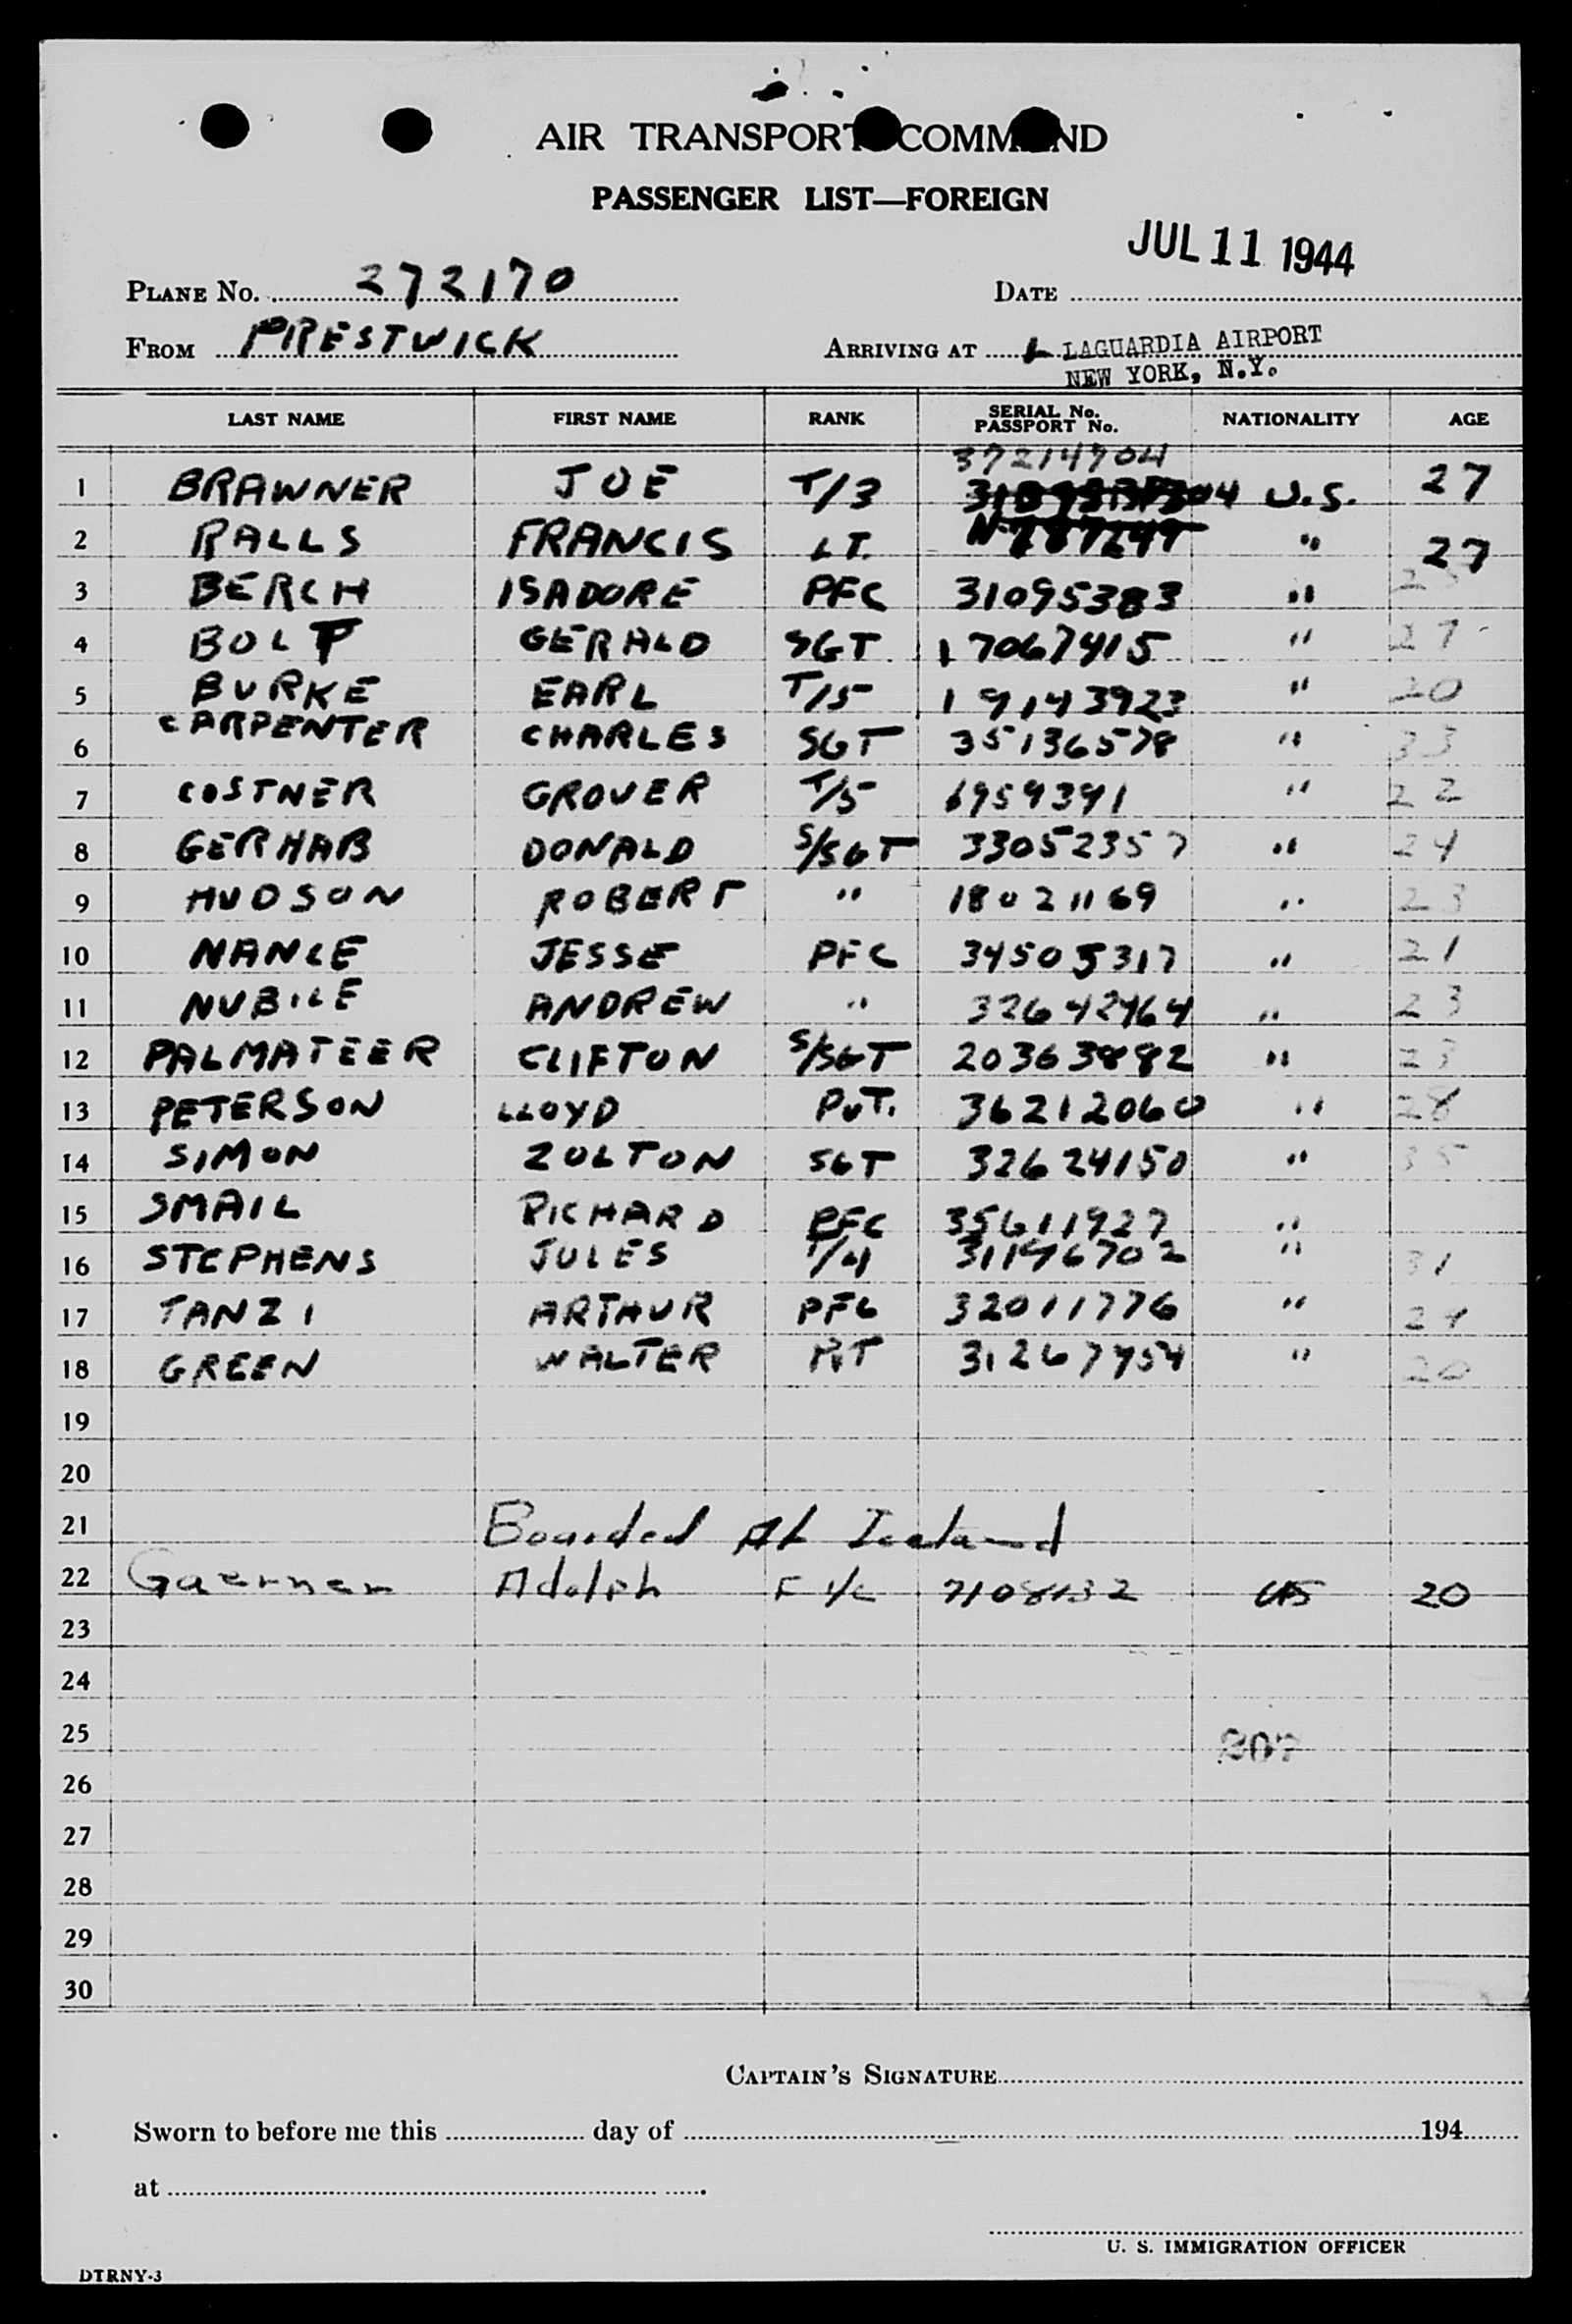 AIR TRANSPORT COMMAND
PASSENGER LIST—FOREIGN
JUL 11 1944
PLANE No. 272170 DATE
FROM PRESTWICK ARRIVING AT LAGUARDIA AIRPORT
NEW YORK, N.Y.
LAST NAME FIRST NAME RANK SERIAL No. PASSPORT No. NATIONALITY AGE
37214904
1 BRAWNER JOE T/3 U.S. 27
2 RALLS FRANCIS LT. " 27
3 BERCH ISADORE PFC 31095383 "
4 BOLT GERALD SGT 17067415 " 27
5 BURKE EARL T/5 19143923 " 20
6 CARPENTER CHARLES SGT 35136578 " 33
7 COSTNER GROVER T/5 6959391 " 22
8 GERHAB DONALD S/SGT 33052357 " 24
9 HUDSON ROBERT " 18021169 " 23
10 NANCE JESSE PFC 34505317 " 21
11 NUBILE ANDREW " 32642464 " 23
12 PALMATEER CLIFTON S/SGT 20363882 " 23
13 PETERSON LLOYD PVT. 36212060 " 28
14 SIMON ZOLTON SGT 32624150 " 35
15 SMAIL RICHARD PFC 35611927 "
16 STEPHENS JULES T/4 31196702 " 31
17 TANZI ARTHUR PFC 32011776 " 24
18 GREEN WALTER PVT 31267954 " 20
19
20
21 Boarded At Iceland
22 Adolph F 1/c 7108132 US 20
23
24
25 207
26
27
28
29
30
CAPTAIN'S SIGNATURE
Sworn to before me this day of 194
at
U. S. IMMIGRATION OFFICER
DTRNY-3